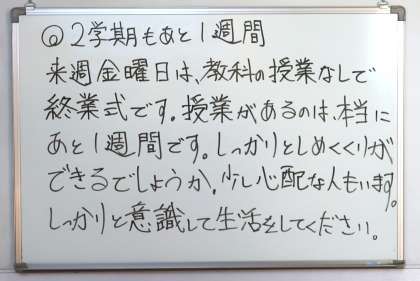 ◎2学期もあと1週間
来週金曜日は、教科の授業なしで
終業式です。授業があるのは、本当に
あと1週間です。しっかりとしめくくりが
できるでしょうか。少し心配な人もいます。
しっかりと意識して生活をしてください。